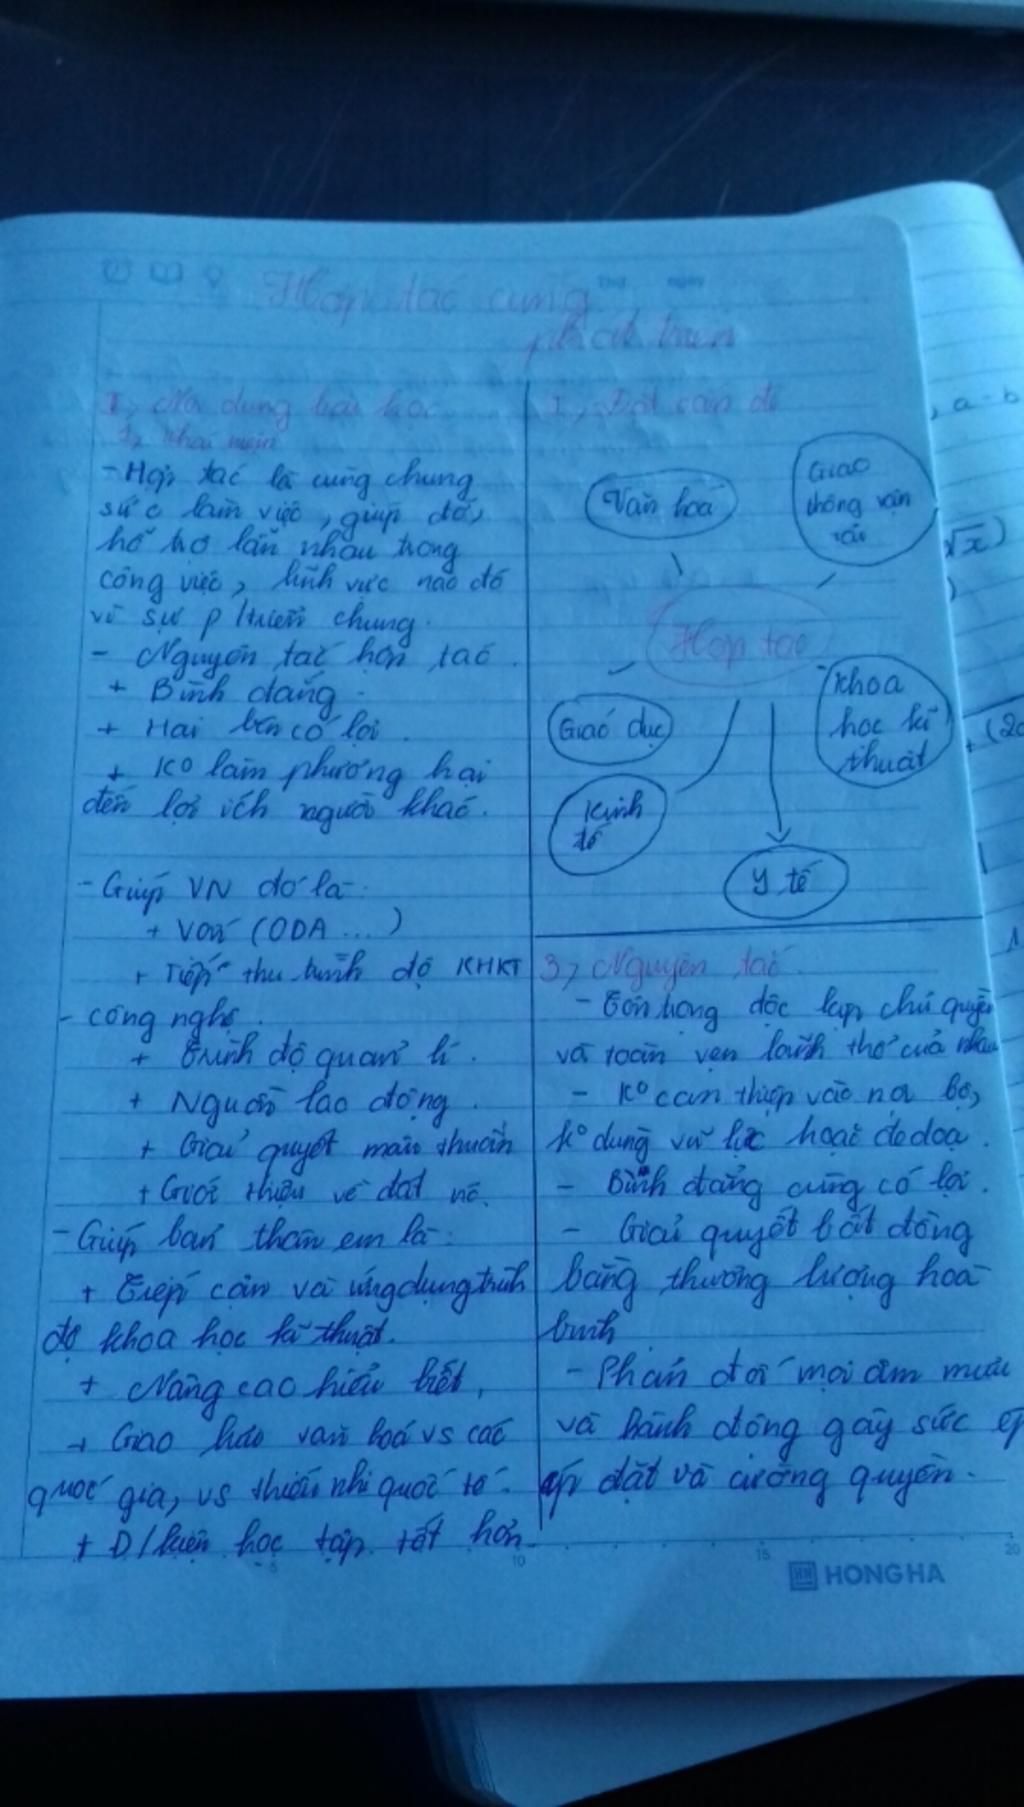 Hợp tác cùng
phát triển
I, Nội dung bài học
1, Khái niệm
- Hợp tác là cùng chung
sức làm việc, giúp đỡ,
hỗ trợ lẫn nhau trong
công việc, lĩnh vực nào đó
vì sự p/triển chung.
- Nguyên tắc hợp tác
+ Bình đẳng
+ Hai bên có lợi.
+ K° làm phương hại
đến lợi ích người khác.
- Giúp VN đó là
+ Vốn (ODA...)
+ Tiếp thu trình độ KHKT
- công nghệ.
+ Trình độ quản lí.
+ Nguồn lao động.
+ Giải quyết mâu thuẫn
+ Giới thiệu về đất nc.
- Giúp bản thân em là:
+ Tiếp cận và ứng dụng trình
độ khoa học kĩ thuật.
+ Nâng cao hiểu biết,
+ Giao lưu văn hoá vs các
quốc gia, vs thiếu nhi quốc tế.
+ Đ/kiện học tập tốt hơn.
I, Đặt vấn đề
Văn hoá
Giao
thông vận
tải
Hợp tác
Giáo dục
Khoa
học kĩ
thuật
Kinh
tế
Y tế
3, Nguyên tắc
- Tôn trọng độc lập chủ quyền
và toàn vẹn lãnh thổ của nhau
- K° can thiệp vào nội bộ,
k° dùng vũ lực hoặc đe doạ.
- Bình đẳng cùng có lợi.
- Giải quyết bất đồng
bằng thương lượng hoà
bình
- Phản đối mọi âm mưu
và hành động gây sức ép
áp đặt và cường quyền.
, a - b
√x)
)
+ (2
5 10 15 20
HONG HA